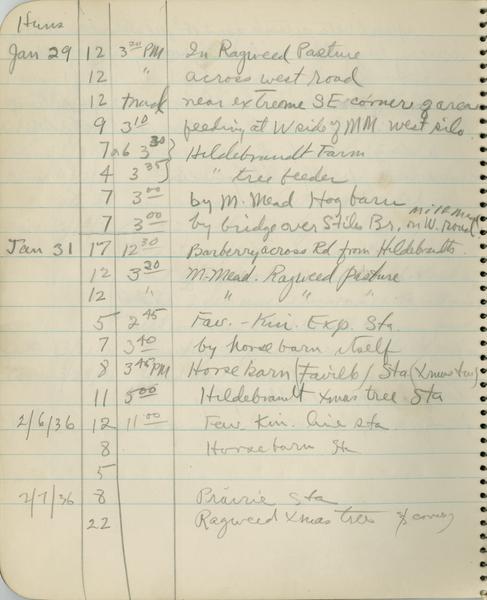 Huns
Jan 29 12 3 20 PM In Ragweed Pasture
12 " across west road
12 track near extreme SE corner of area
9 3 10 feeding at W side of MM west silo
7 or 6 3 30 } Hildebrandt Farm
4 3 35 } " tree feeder
7 3 00 by M. Mead Hog barn
7 3 00 by bridge over Stiles Br. on W. road
Jan 31 17 12 30 Barberry across Rd from Hildebrandts.
12 3 20 M-Mead. Ragweed pasture
12 " " " "
5 2 45 Fav. - Kin. Exp. Sta
7 3 40 by horse barn itself
8 3 45 PM Horse barn (Fairlb) Sta (Xmas tree)
11 5 00 Hildebrandt Xmas tree Sta
2/6/36 12 11 00 Fav. Kin. line sta
8 Horsebarn Sta
5
2/7/36 8 Prairie Sta
22 Ragweed Xmas trees